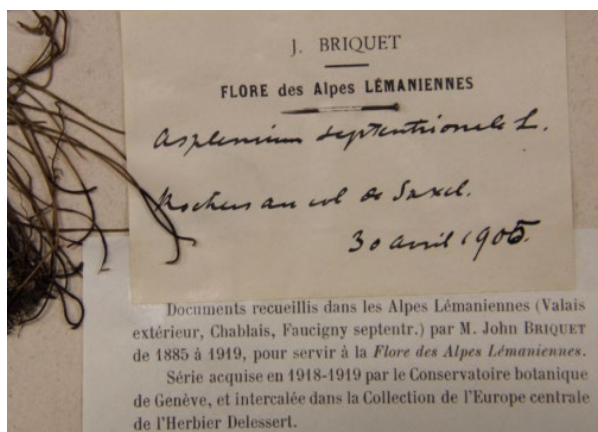 J. BRIQUET
FLORE des Alpes LÉMANIENNES
Asplenium septentrionale L.
Rochers au col de Saxel.
30 avril 1905.
Documents recueillis dans les Alpes Lémaniennes (Valais
extérieur, Chablais, Faucigny septentr.) par M. John BRIQUET
de 1885 à 1919, pour servir à la Flore des Alpes Lémaniennes.
Série acquise en 1918-1919 par le Conservatoire botanique
de Genève, et intercalée dans la Collection de l'Europe centrale
de l'Herbier Delessert.